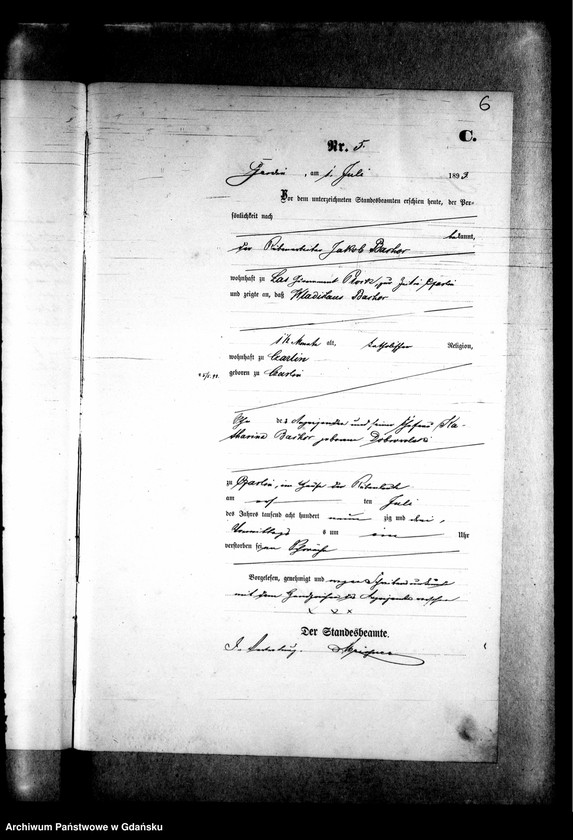 6
C.
Nr. 5.
am 1. Juli 1893
Vor dem unterzeichneten Standesbeamten erschien heute, der Per-
sönlichkeit nach
bekannt,
der Rübenarbeiter Jakob Baskor
wohnhaft zu
und zeigte an, daß Wladislaus Baskor
1½ Monate alt, katholischer Religion,
wohnhaft zu Czarlin
geboren zu Czarlin
des Anzeigenden und seiner Ehefrau Ka-
tharina Baskor geborene Dobrowolski
zu Czarlin, im Hause der
am ten Juli
des Jahres tausend acht hundert neun zig und drei,
Vormittags s um ein Uhr
verstorben sei an Schwäche
Vorgelesen, genehmigt und wegen
mit dem Handzeichen des Anzeigenden versehen
x x x
Der Standesbeamte.
In Vertretung.
Archiwum Państwowe w Gdańsku